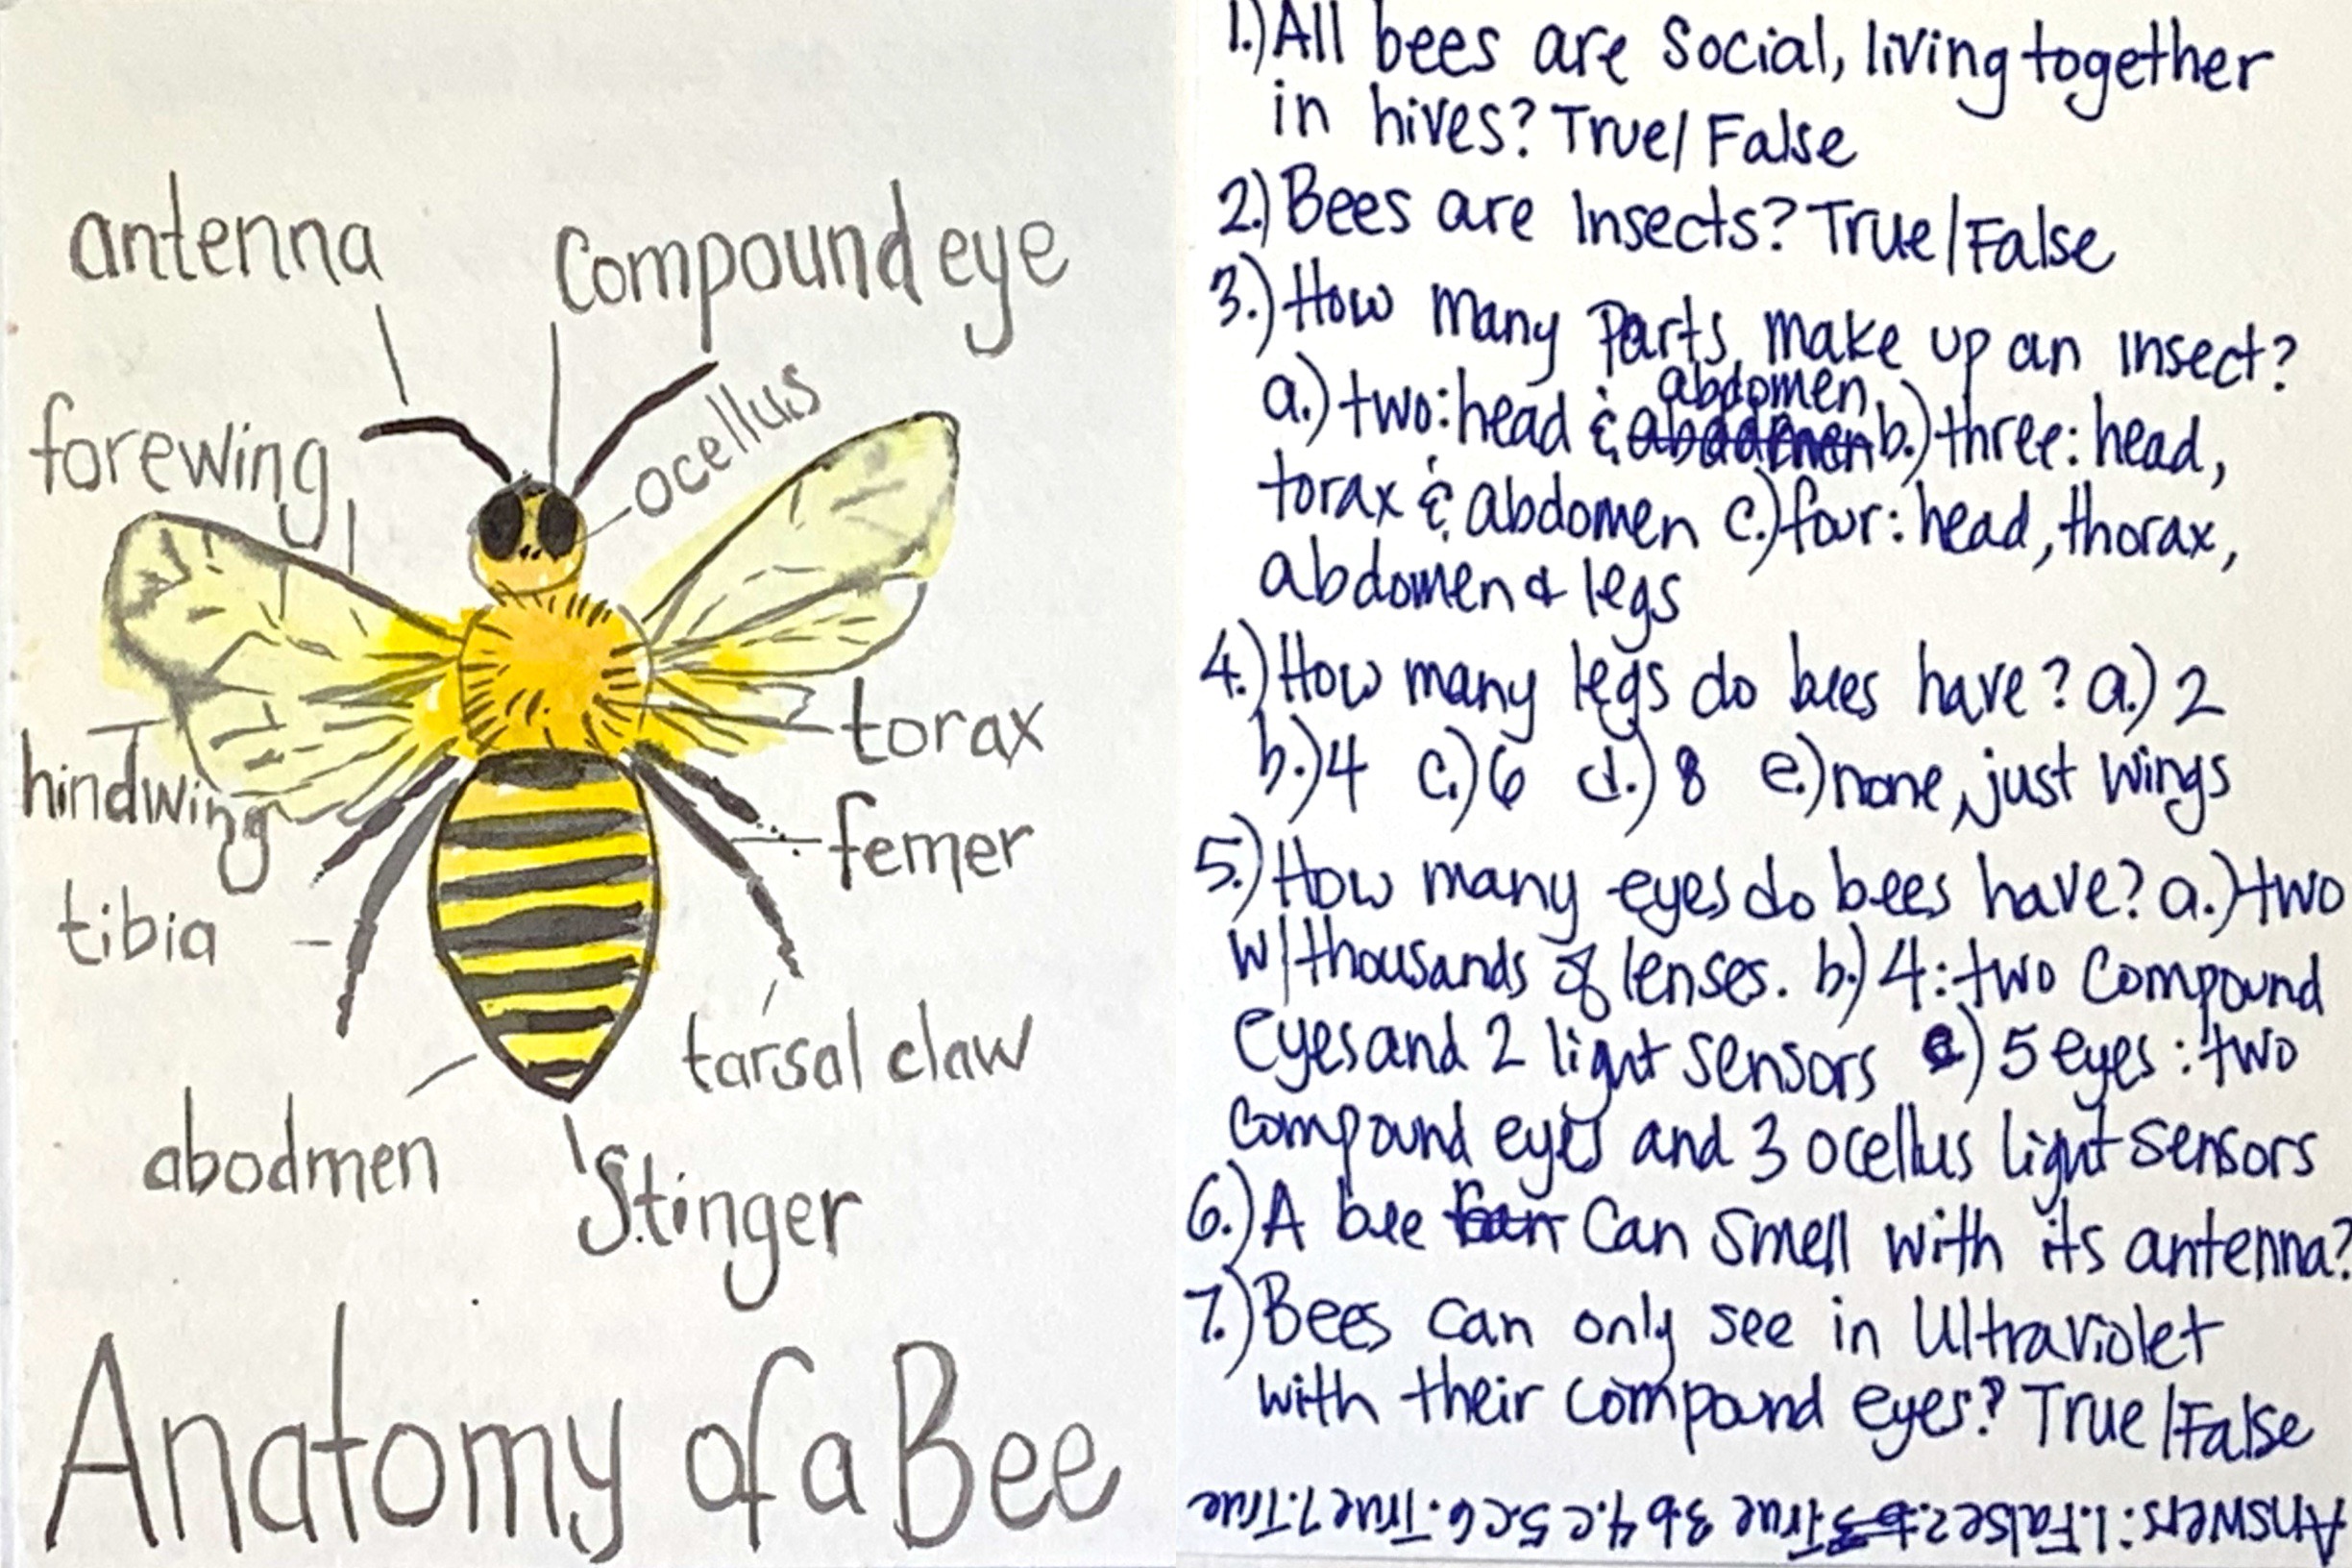 antenna
compound eye
ocellus
forewing
torax
hindwing
femer
tibia
tarsal claw
abodmen
Stinger
Anatomy of a Bee
1.) All bees are Social, living together
in hives? True/False
2.) Bees are Insects? True/False
3.) How many Parts make up an insect?
abdomen
a.) two: head & b.) three: head,
torax & Abdomen c.) four: head, thorax,
abdomen & legs
4.) How many legs do bees have? a.) 2
b.) 4 c.) 6 d.) 8 e.) none, just wings
5.) How many eyes do bees have? a.) two
w/thousands of lenses. b.) 4: two Compound
eyes and 2 light sensors c.) 5 eyes: two
compound eyes and 3 ocellus light sensors
6.) A bee Can Smell with its antenna?
7.) Bees can only see in Ultraviolet
with their compound eyes? True/False
Answers: 1. False 2. True 3. b 4. c 5. c 6. True 7. True